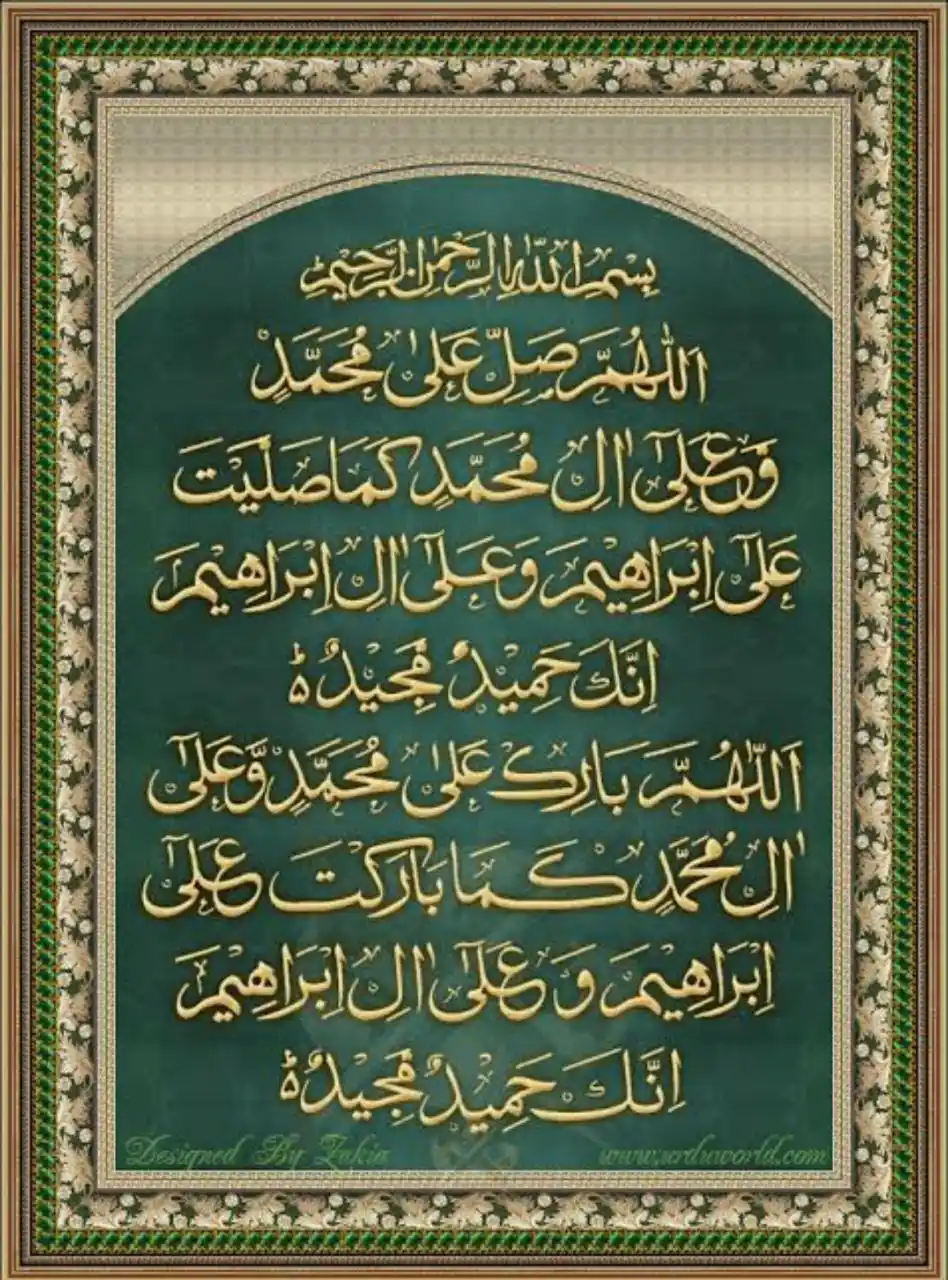 بِسْمِ اللهِ الرَّحْمٰنِ الرَّحِيْمِ
اَللّٰهُمَّ صَلِّ عَلٰى مُحَمَّدٍ
وَّعَلٰٓى اٰلِ مُحَمَّدٍ كَمَا صَلَّيْتَ
عَلٰٓى اِبْرَاهِيْمَ وَعَلٰٓى اٰلِ اِبْرَاهِيْمَ
اِنَّكَ حَمِيْدٌ مَّجِيْدٌ ۃ
اَللّٰهُمَّ بَارِكْ عَلٰى مُحَمَّدٍ وَّعَلٰٓى
اٰلِ مُحَمَّدٍ كَمَا بَارَكْتَ عَلٰٓى
اِبْرَاهِيْمَ وَعَلٰٓى اٰلِ اِبْرَاهِيْمَ
اِنَّكَ حَمِيْدٌ مَّجِيْدٌ ۃ
Designed By Zakia
www.urduworld.com